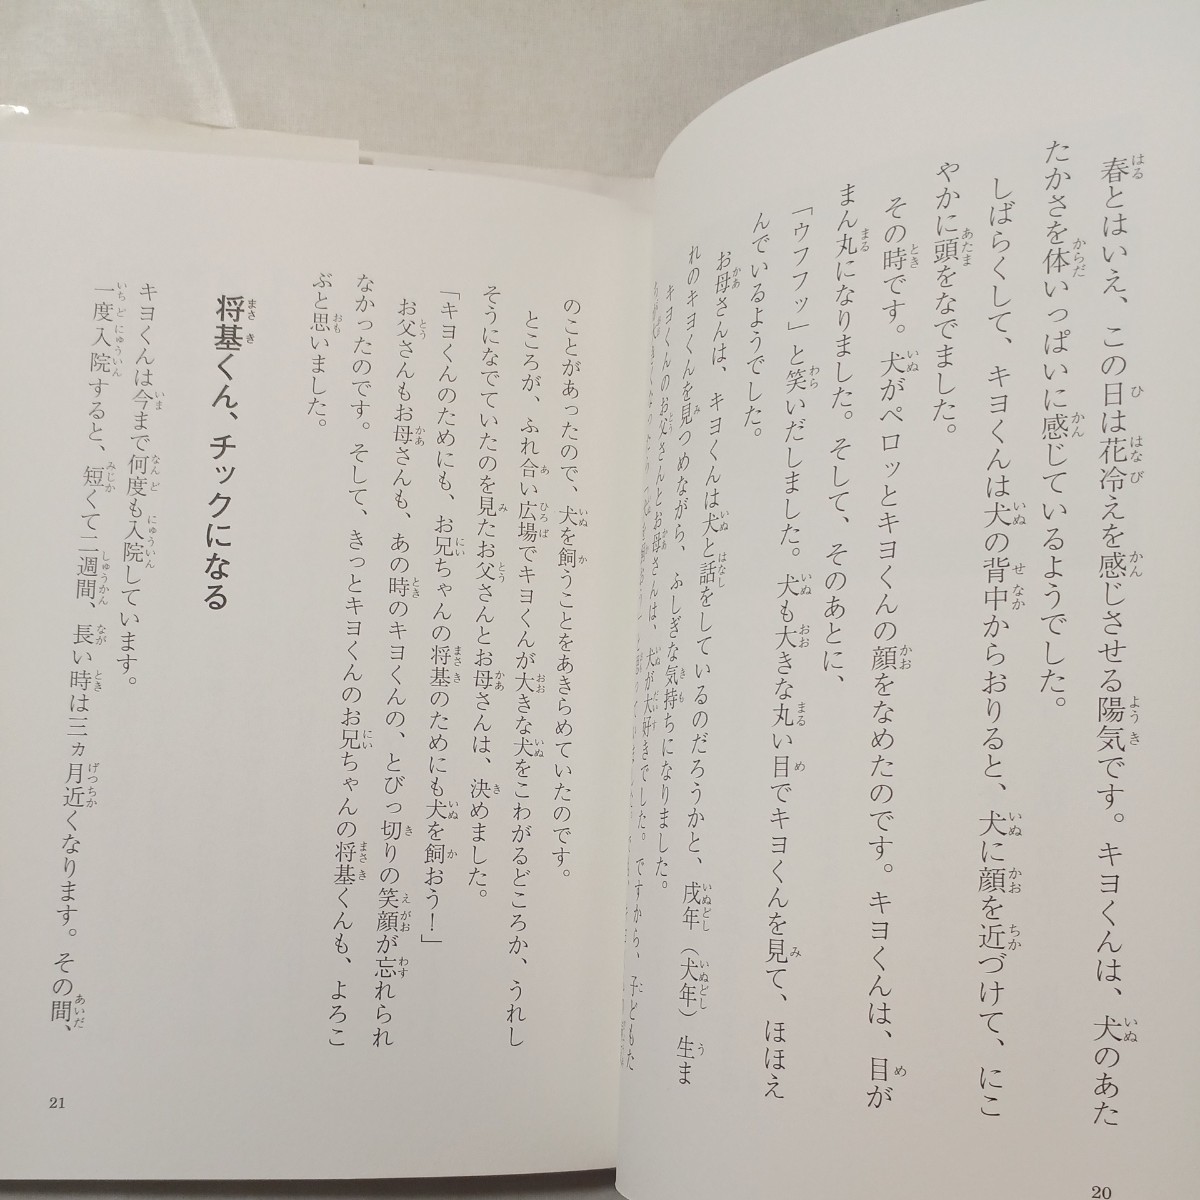 春とはいえ、この日は花冷えを感じさせる陽気です。キヨくんは、犬のあた
たかさを体いっぱいに感じているようでした。
しばらくして、キヨくんは犬の背中からおりると、犬に顔を近づけて、にこ
やかに頭をなでました。
その時です。犬がペロッとキヨくんの顔をなめたのです。キヨくんは、目が
まん丸になりました。そして、そのあとに、
「ウフフッ」と笑いだしました。犬も大きな丸い目でキヨくんを見て、ほほえ
んでいるようでした。
お母さんは、キヨくんは犬と話をしているのだろうかと、戌年（犬年）生ま
れのキヨくんを見つめながら、ふしぎな気持ちになりました。
キヨくんのお父さんとお母さんは、犬が大好きでした。ですから、子どもた
20
のことがあったので、犬を飼うことをあきらめていたのです。
ところが、ふれ合い広場でキヨくんが大きな犬をこわがるどころか、うれし
そうになでていたのを見たお父さんとお母さんは、決めました。
「キヨくんのためにも、お兄ちゃんの将基のためにも犬を飼おう！」
お父さんもお母さんも、あの時のキヨくんの、とびっ切りの笑顔が忘れられ
なかったのです。そして、きっとキヨくんのお兄ちゃんの将基くんも、よろこ
ぶと思いました。
将基くん、チックになる
キヨくんは今まで何度も入院しています。
一度入院すると、短くて二週間、長い時は三ヵ月近くなります。その間、
21